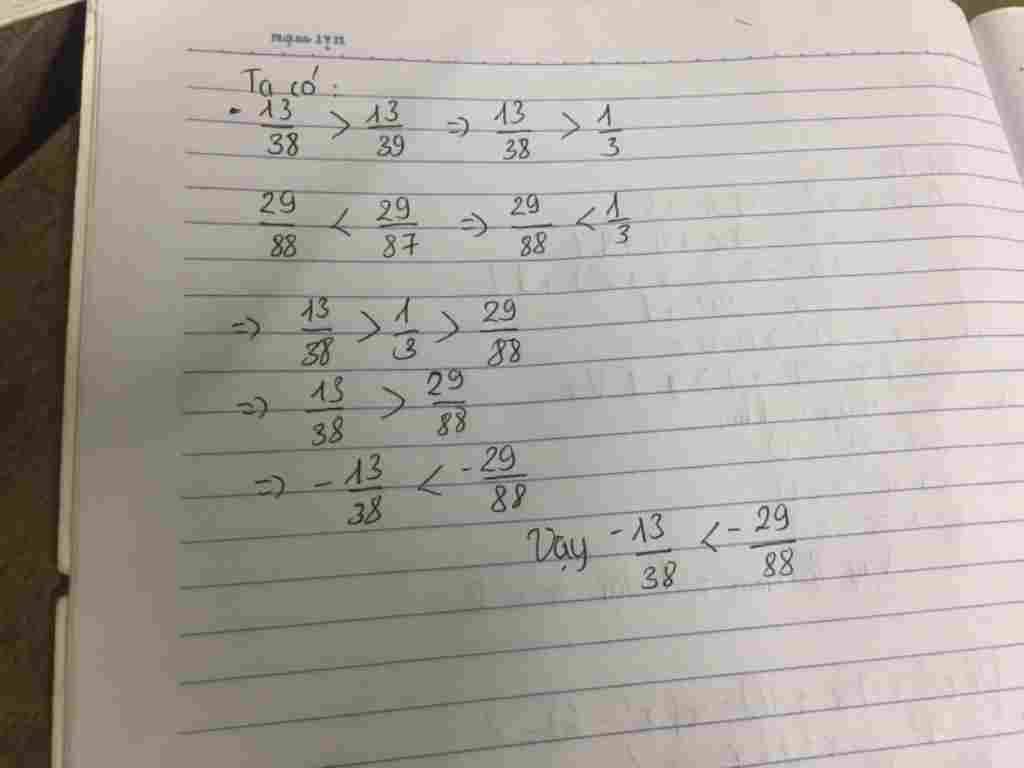 Ta có:
- 13/38 > 13/39 => 13/38 > 1/3
29/88 < 29/87 => 29/88 < 1/3
=> 13/38 > 1/3 > 29/88
=> 13/38 > 29/88
=> -13/38 < -29/88
Vậy -13/38 < -29/88